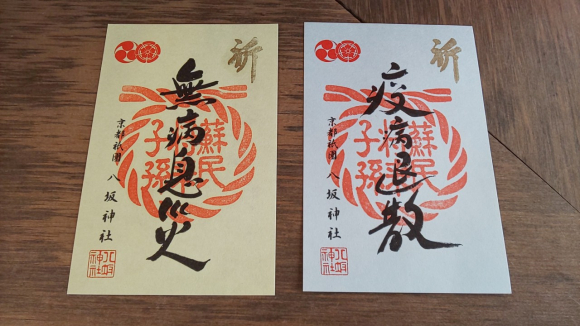 祈
無病息災
蘇民
子孫
京都祇園 八坂神社
八坂
神社
祈
疫病退散
蘇民
子孫
京都祇園 八坂神社
八坂
神社